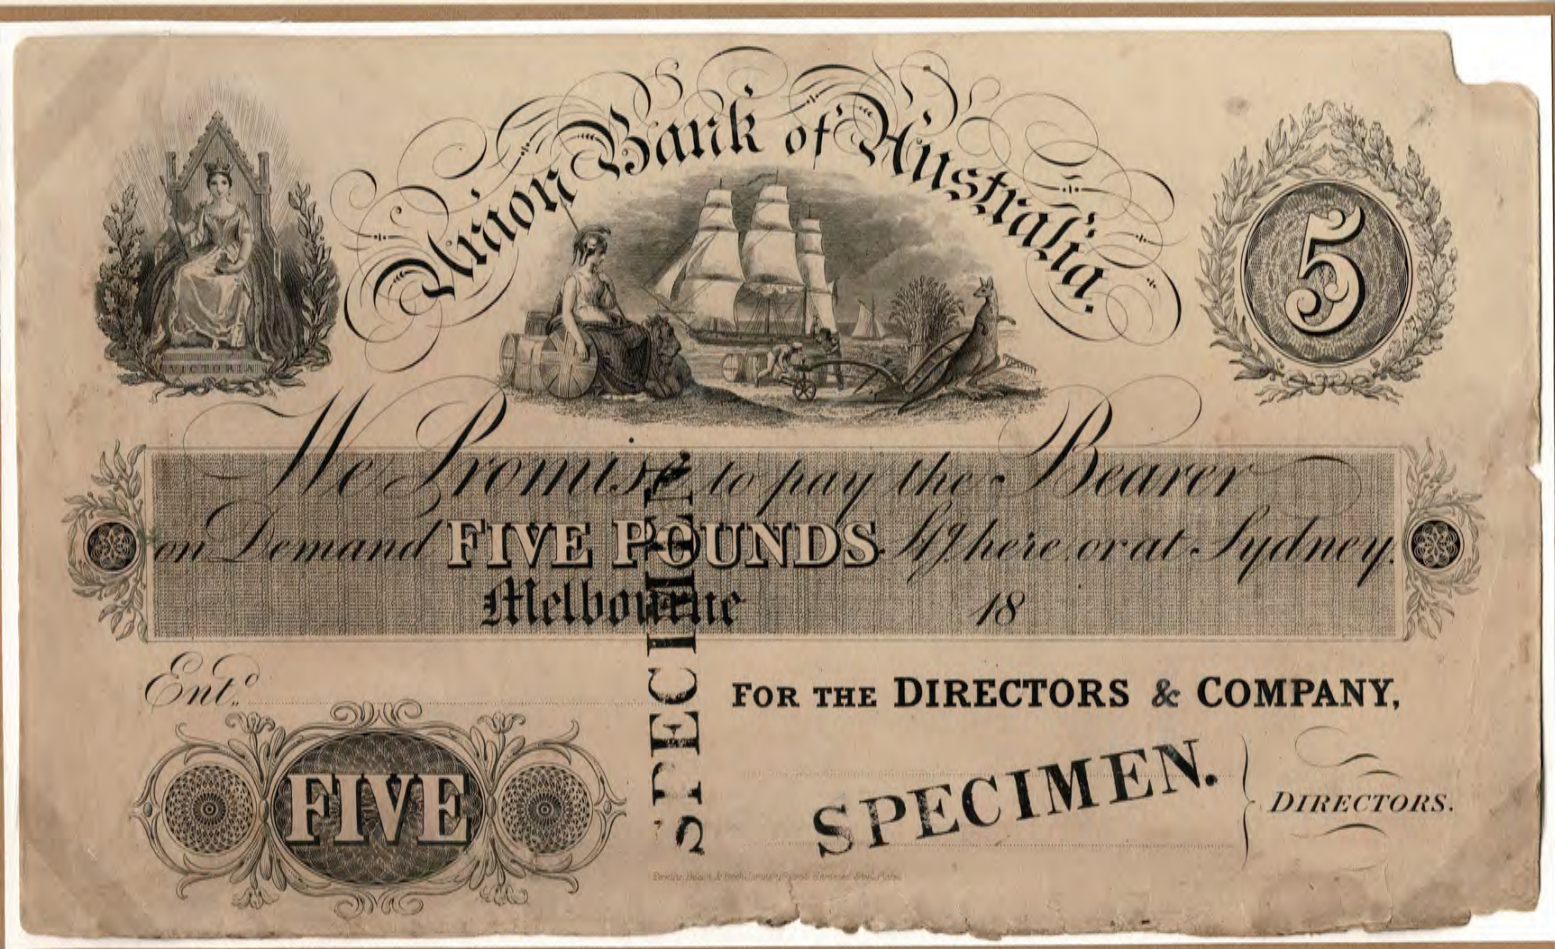 Union Bank of Australia.
5
VICTORIA
We Promise to pay the Bearer
on Demand FIVE POUNDS Stg. here, or at Sydney.
Melbourne 18
Ent.d
FOR THE DIRECTORS & COMPANY,
SPECIMEN.
SPECIMEN.
DIRECTORS.
FIVE